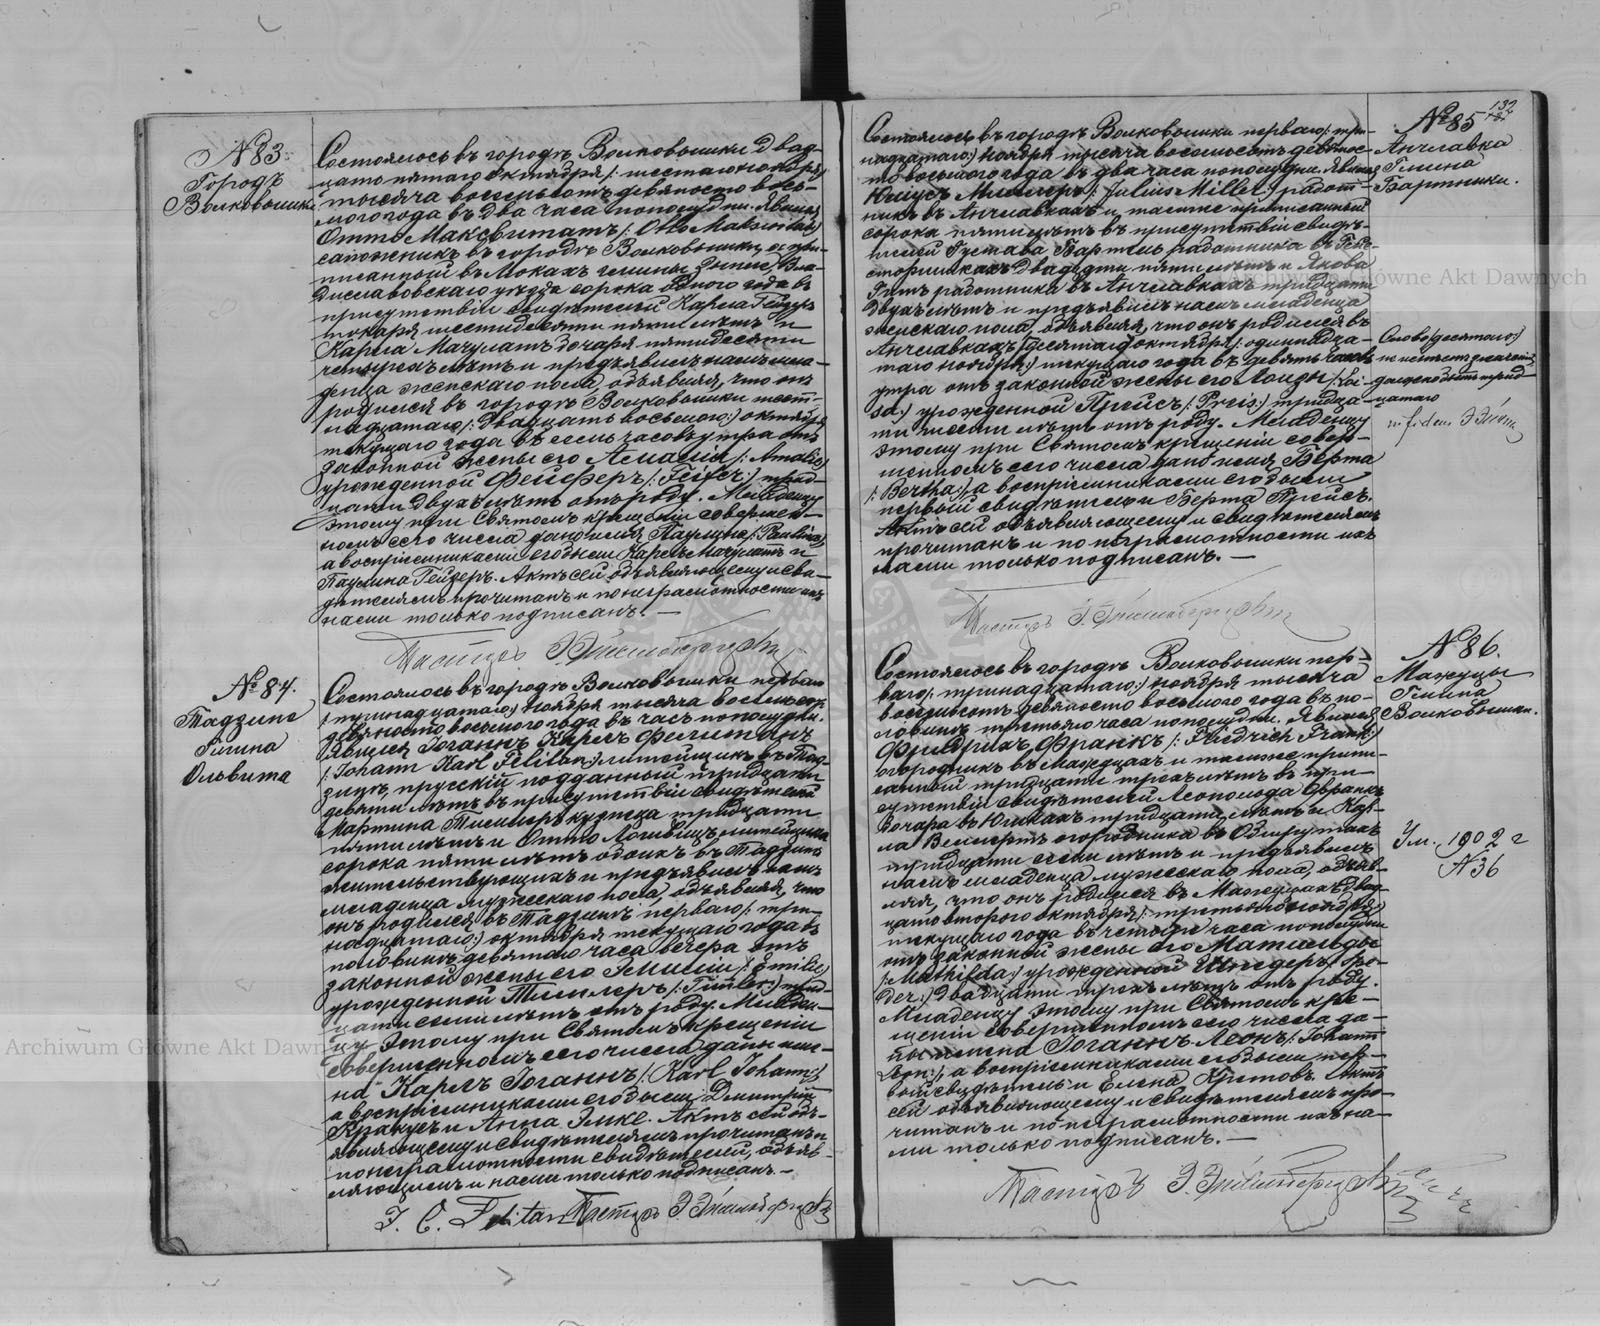 № 83.
Городъ
Волковышки
Состоялось въ городѣ Волковышки двад-
цать пятаго октября /: шестаго ноября :/
тысяча восемьсотъ девяносто вось-
мого года въ два часа пополудни. Явился
Отто Максвитатъ /: Otto Makswitat :/
сапожникъ въ городѣ Волковышки, а при-
писанный въ Мокахъ гмины Зыпле, Вла-
диславовскаго уѣзда сорока одного года въ
присутствіи свидѣтелей Карла Гейзеръ
токаря шестидесяти пяти лѣтъ и
Карла Мачулатъ бочаря пятидесяти
четырехъ лѣтъ и предъявилъ намъ мла-
денца женскаго пола, объявляя, что онъ
родился въ городѣ Волковышки шест-
надцатаго /: двадцать восьмого :/ октября
текущаго года въ семь часовъ утра отъ
законной жены его Амаліи /: Amalie :/
урожденной Фейферъ /: Feifer :/ трид-
цати двухъ лѣтъ отъ роду. Младенцу
этому при Святомъ крещеніи совершен-
номъ сего числа дано имя Паулине /: Paulina :/
а воспріемниками его были Карлъ Мачулатъ и
Паулина Гейзеръ. Актъ сей объявляющему и сви-
дѣтелямъ прочитанъ и по неграмотности ихъ
нами только подписанъ. —
Пасторъ
№ 84.
Тадзине
Гмина
Ольвита
Состоялось въ городѣ Волковышки перваго
/: тринадцатаго :/ ноября тысяча восемьсотъ
девяносто восьмого года въ часъ пополудни.
Явился Іоганнъ Карлъ Фелитанъ
/: Johann Karl Felitan :/ литейщикъ въ Тад-
зинѣ, прусскій подданный тридцати
девяти лѣтъ въ присутствіи свидѣтелей
Мартина Тиммлеръ кузнеца тридцати
пяти лѣтъ и Отто литейщика
сорока пяти лѣтъ обоихъ въ Тадзинѣ
жительствующихъ и предъявилъ намъ
младенца мужескаго пола, объявляя, что
онъ родился въ Тадзинѣ перваго /: три-
надцатаго :/ октября текущаго года въ
половинѣ девятаго часа вечера отъ
законной жены его Эмиліи /: Emilie :/
урожденной Тиммлеръ /: Timler :/ трид-
цати семи лѣтъ отъ роду. Младен-
цу этому при Святомъ крещеніи
совершенномъ сего числа даны име-
на Карлъ Іоганнъ /: Karl Johann :/
а воспріемниками его были Дмитрій
и Анна Эмке. Актъ сей объ-
являющему и свидѣтелямъ прочитанъ и
по неграмотности свидѣтелей, объяв-
ляющимъ и нами только подписанъ. —
J. C. Felitan Пасторъ
132
№ 85
Анчлавка
Гмина
Бартники.
Состоялось въ городѣ Волковышки перваго /: три-
надцатаго :/ ноября тысяча восемьсотъ девянос-
то восьмого года въ два часа пополудни. Явился
Юліусъ Миллеръ /: Julius Miller :/ работ-
никъ въ Анчлавкахъ и тамже приписанный
сорока пяти лѣтъ въ присутствіи свидѣ-
телей Густава Бартель работника въ
двадцати пяти лѣтъ и Якова
работника въ Анчлавкахъ тридцати
двухъ лѣтъ и предъявилъ намъ младенца
женскаго пола, объявляя, что онъ родился въ
Анчлавкахъ /десятаго октября /: одиннадца-
таго ноября :/ текущаго года въ девять часовъ
утра отъ законной жены его Лоизы /: Loi-
sa :/ урожденной Прейсъ /: Preis :/ тридца-
ти шести лѣтъ отъ роду. Младенцу
этому при Святомъ крещеніи совер-
шенномъ сего числа дано имя Берта
/: Bertha :/, а воспріемниками его были
первый свидѣтель и Берта Прейсъ.
Актъ сей объявляющему и свидѣтелямъ
прочитанъ и по неграмотности ихъ
нами только подписанъ. —
Слово /десятаго :/
не имѣетъ значенія,
должно быть трид-
цатаго
in fidem
Пасторъ
№ 86.
Мажуцы
Гмина
Волковышки.
Состоялось въ городѣ Волковышки пер-
ваго /: тринадцатаго :/ ноября тысяча
восемьсотъ девяносто восьмого года въ по-
ловинѣ третьяго часа пополудни. Явился
Фридрихъ Франкъ /: Friedrich Frank :/
огородникъ въ Мажуцахъ и тамже припи-
санный тридцати трехъ лѣтъ въ при-
сутствіи свидѣтелей Леопольда Франкъ
бочара въ тридцати лѣтъ и Кар-
ла Веллертъ огородника въ
тридцати семи лѣтъ и предъявилъ
намъ младенца мужескаго пола, объяв-
ляя, что онъ родился въ Мажуцахъ двад-
цать второго октября /: третьяго ноября :/
текущаго года въ четыре часа пополудни
отъ законной жены его Матильды
/: Mathilda :/ урожденной Шредеръ /: Шре-
der :/ двадцати трехъ лѣтъ отъ роду.
Младенцу этому при Святомъ кре-
щеніи совершенномъ сего числа да-
ны имена Іоганнъ Леонъ /: Johann
Leon :/, а воспріемниками его были пер-
вый свидѣтель и Елена Актъ
сей объявляющему и свидѣтелямъ про-
читанъ и по неграмотности ихъ на-
ми только подписанъ. —
Ум. 1902 г
№ 36
Пасторъ
Archiwum Główne Akt Dawnych
Archiwum Główne Akt Dawnych